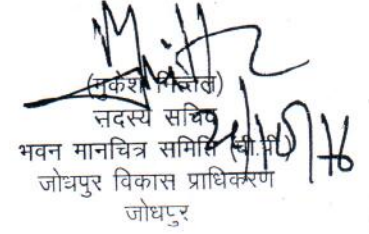 (मुकेश मित्तल)
सदस्य सचिव
भवन मानचित्र समिति (बी.पी.)
जोधपुर विकास प्राधिकरण
जोधपुर